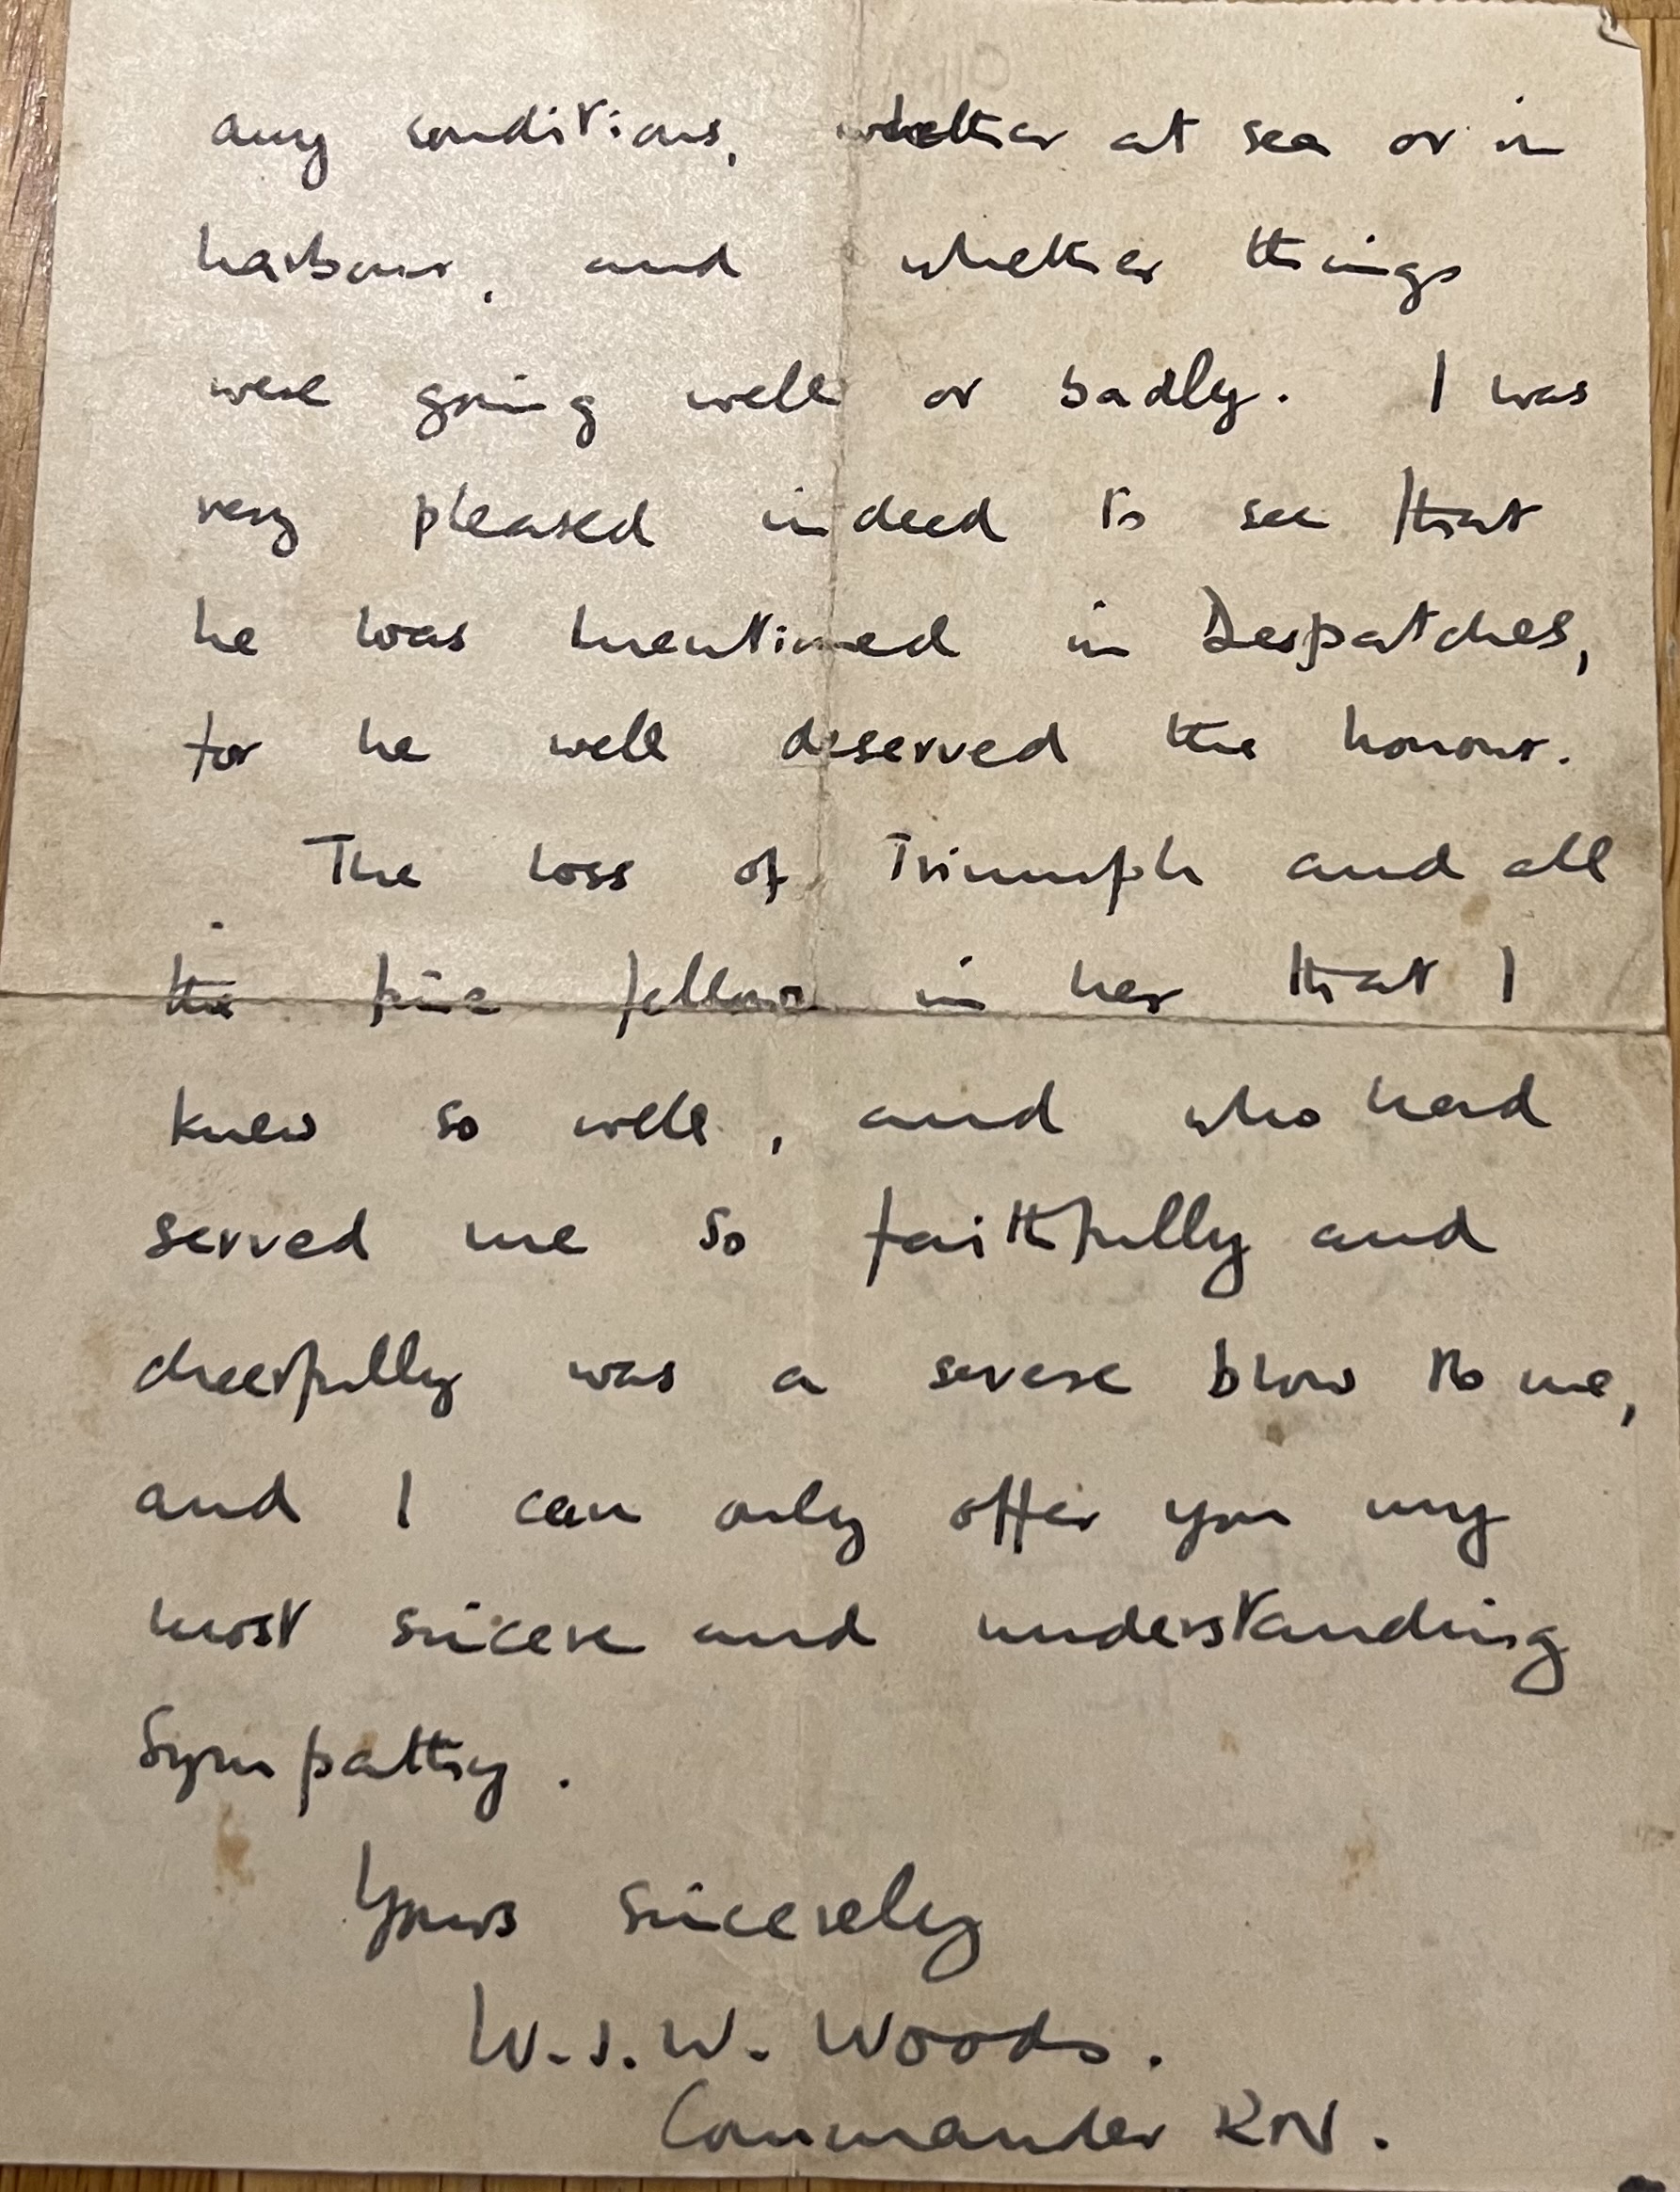 any conditions, whether at sea or in
harbour, and whether things
were going well or badly. I was
very pleased indeed to see that
he was mentioned in Despatches,
for he well deserved the honour.
The loss of Triumph and all
the fine fellows in her that I
knew so well, and who had
served me so faithfully and
cheerfully was a severe blow to me,
and I can only offer you my
most sincere and understanding
sympathy.
Yours sincerely
W.J.W. Woods.
Commander RN.